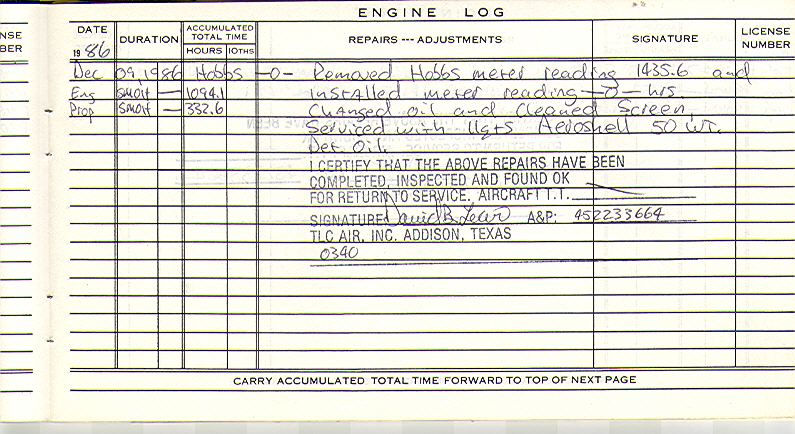 ENGINE LOG
NSE
BER
DATE
1986
DURATION
ACCUMULATED TOTAL TIME
HOURS 10THS
REPAIRS --- ADJUSTMENTS
SIGNATURE
LICENSE NUMBER
Dec 09, 1986 Hobbs -0- Removed Hobbs meter reading 1435.6 and
Eng SMOH — 1094.1 installed meter reading -0- hrs.
Prop SMOH — 332.6 Changed oil and Cleaned Screen.
Serviced with 11qts Aeroshell 50 WT.
Det. Oil.
I CERTIFY THAT THE ABOVE REPAIRS HAVE BEEN
COMPLETED, INSPECTED AND FOUND OK
FOR RETURN TO SERVICE. AIRCRAFT T.T.
SIGNATURE David B. A&P: 452233664
TLC AIR, INC. ADDISON, TEXAS
0340
CARRY ACCUMULATED TOTAL TIME FORWARD TO TOP OF NEXT PAGE